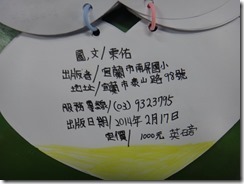 圖,文/栗佑
出版者/宜蘭市南屏國小
地址/宜蘭市泰山路98號
服務專線/(03)9323795
出版日期/2014年2月17日
定價/1000元 英磅